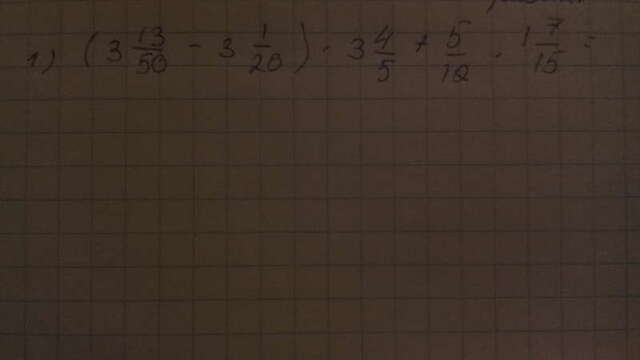 1) (3 13/50 - 3 1/20) · 3 4/5 + 5/12 · 1 7/15 =